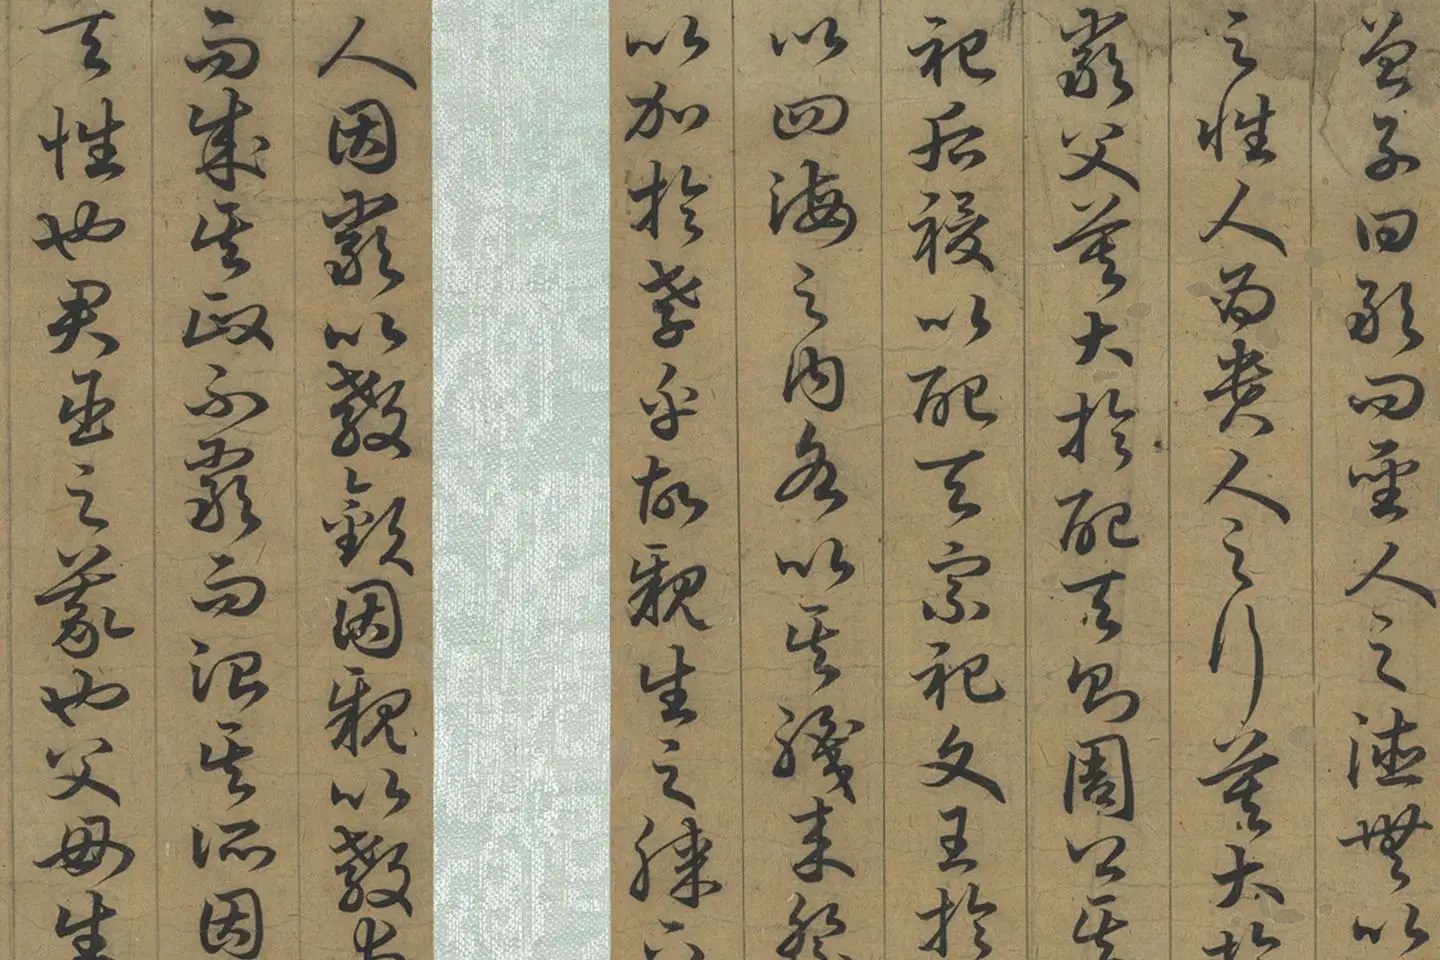 曾子曰敢問聖人之德無以
之性人為貴人之行莫大於
嚴父莫大於配天則周公其
祀后稷以配天宗祀文王於
以四海之內各以其職來祭
以加於孝乎故親生之膝下
人因嚴以教敬因親以教愛
而成其政不嚴而治其所因
天性也君臣之義也父母生